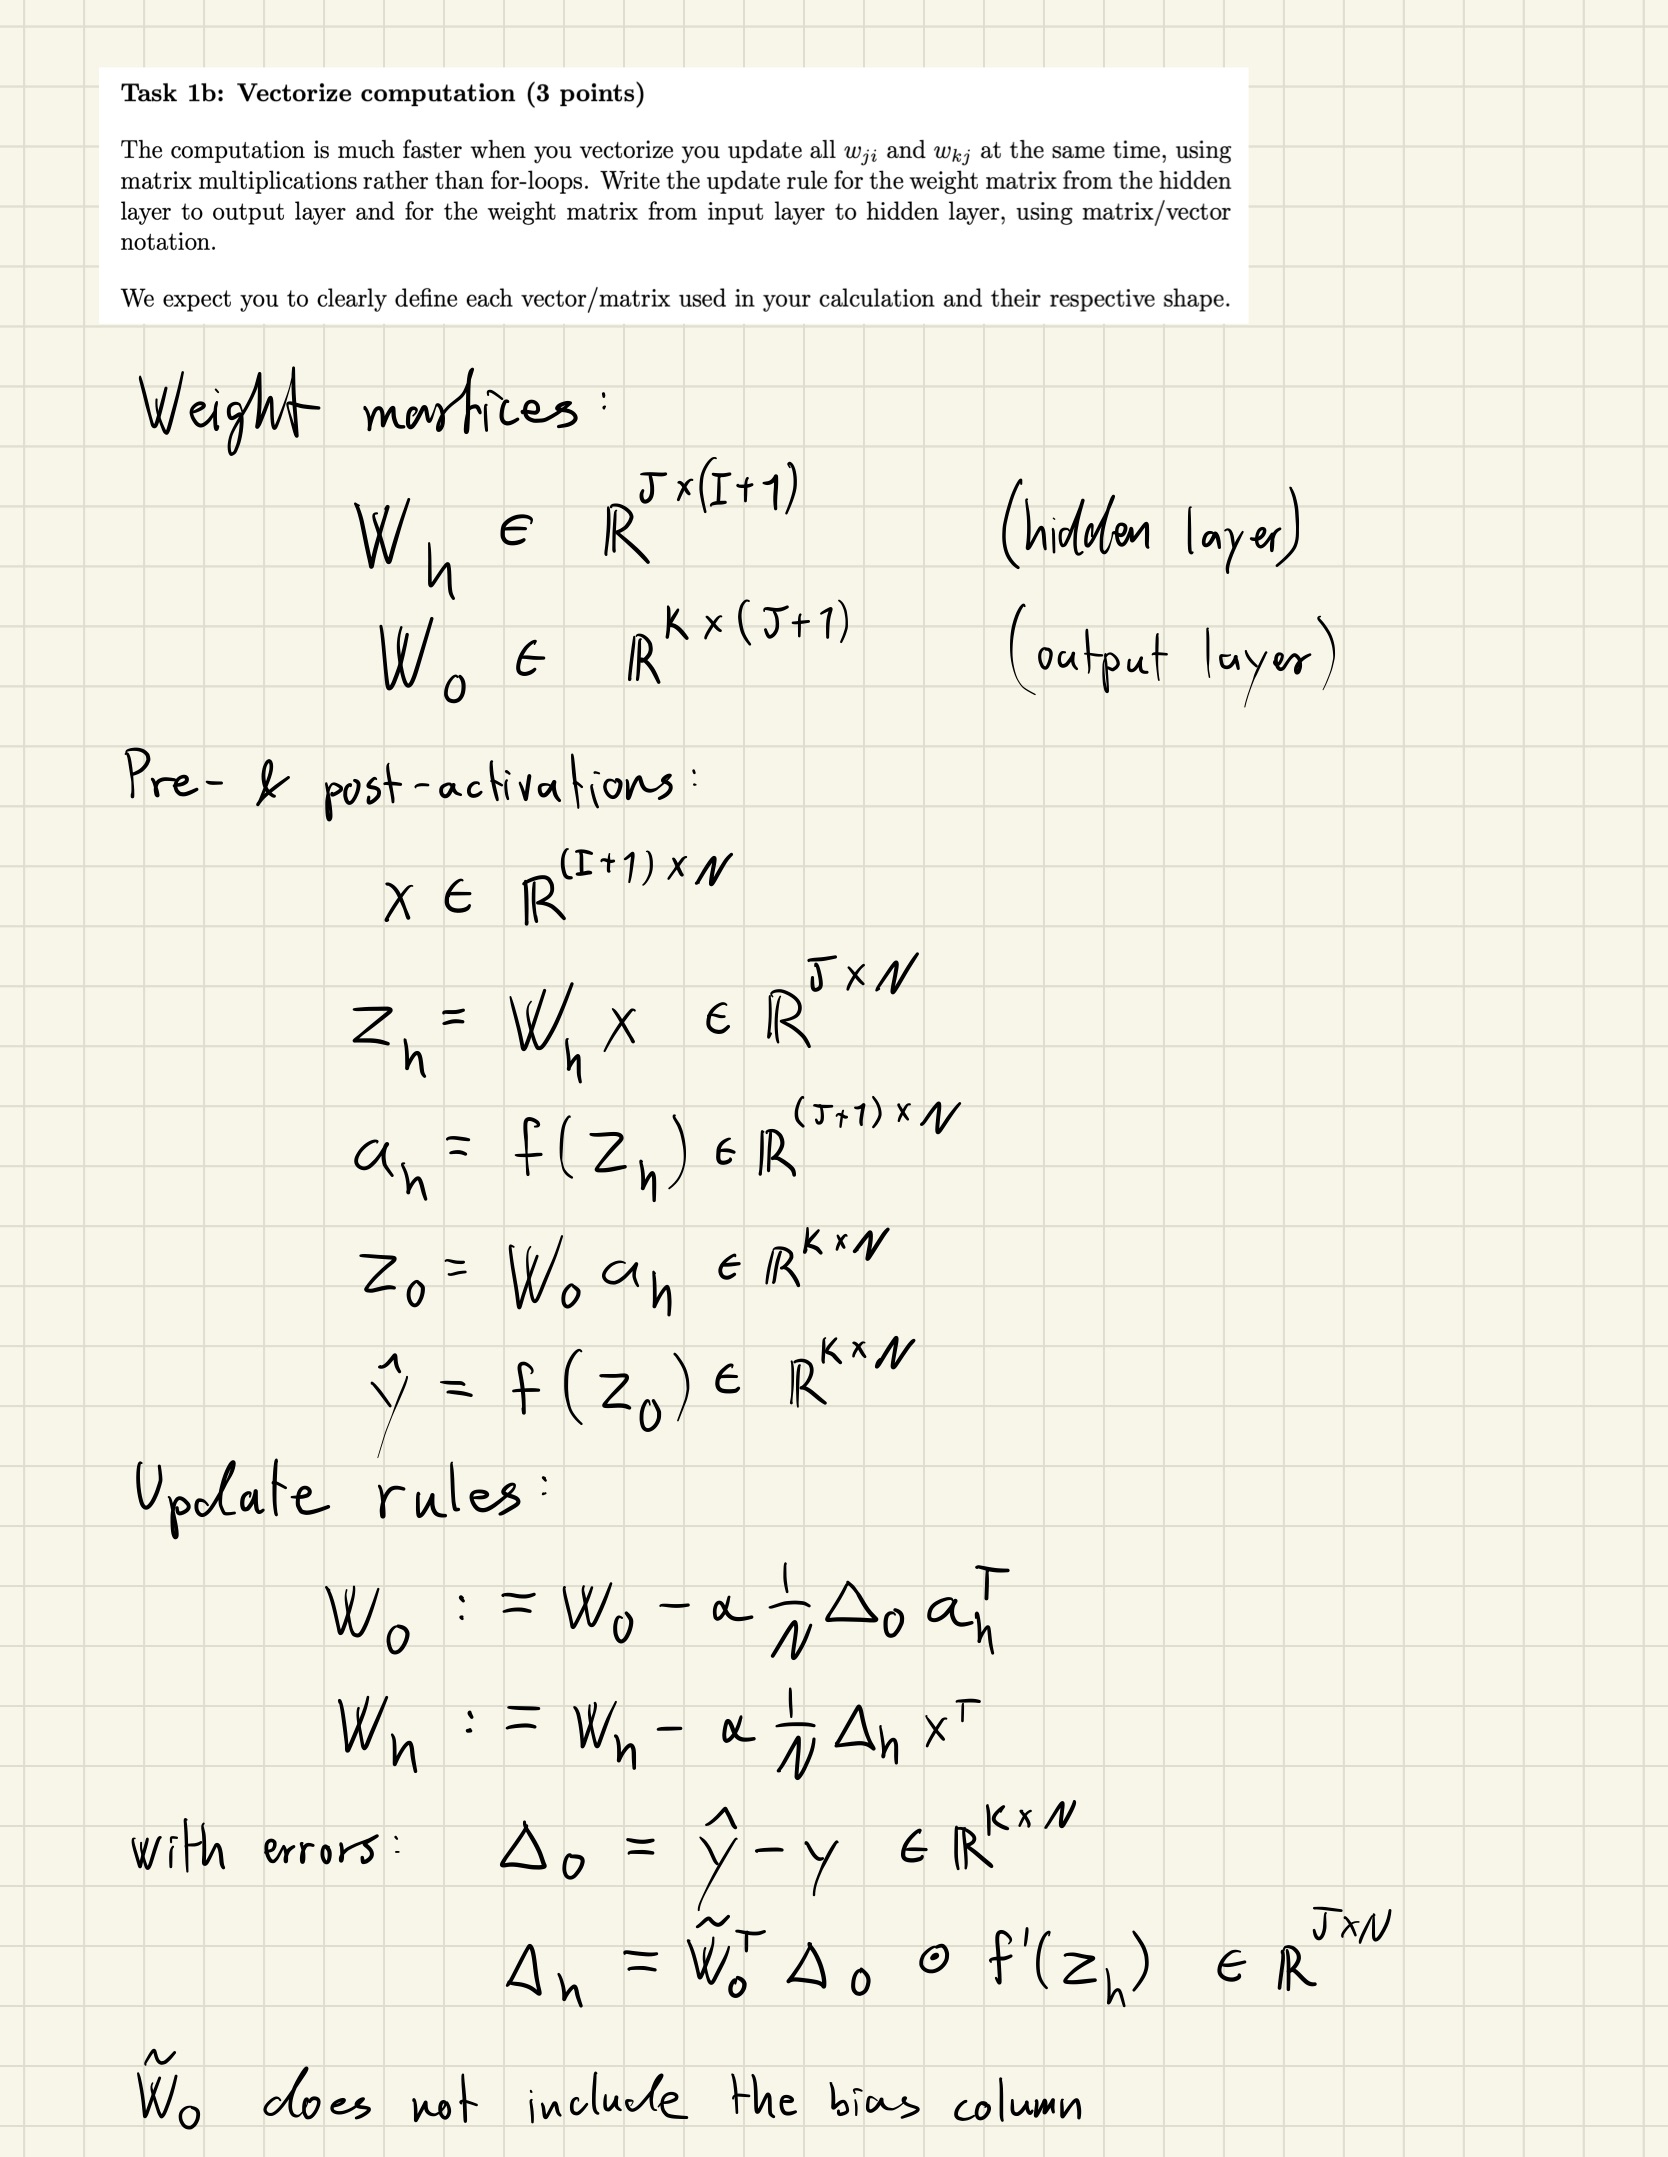 Task 1b: Vectorize computation (3 points)
The computation is much faster when you vectorize you update all w_{ji} and w_{kj} at the same time, using
matrix multiplications rather than for-loops. Write the update rule for the weight matrix from the hidden
layer to output layer and for the weight matrix from input layer to hidden layer, using matrix/vector
notation.
We expect you to clearly define each vector/matrix used in your calculation and their respective shape.
Weight martices:
W_h ∈ ℝ^{J×(I+1)} (hidden layer)
W_o ∈ ℝ^{K×(J+1)} (output layer)
Pre- & post-activations:
x ∈ ℝ^{(I+1)×N}
z_h = W_h x ∈ ℝ^{J×N}
a_h = f(z_h) ∈ ℝ^{(J+1)×N}
z_o = W_o a_h ∈ ℝ^{K×N}
ŷ = f(z_o) ∈ ℝ^{K×N}
Update rules:
W_o := W_o - α 1/N Δ_o a_h^T
W_h := W_h - α 1/N Δ_h x^T
with errors: Δ_o = ŷ - y ∈ ℝ^{K×N}
Δ_h = W̃_o^T Δ_o ⊙ f'(z_h) ∈ ℝ^{J×N}
W̃_o does not include the bias column